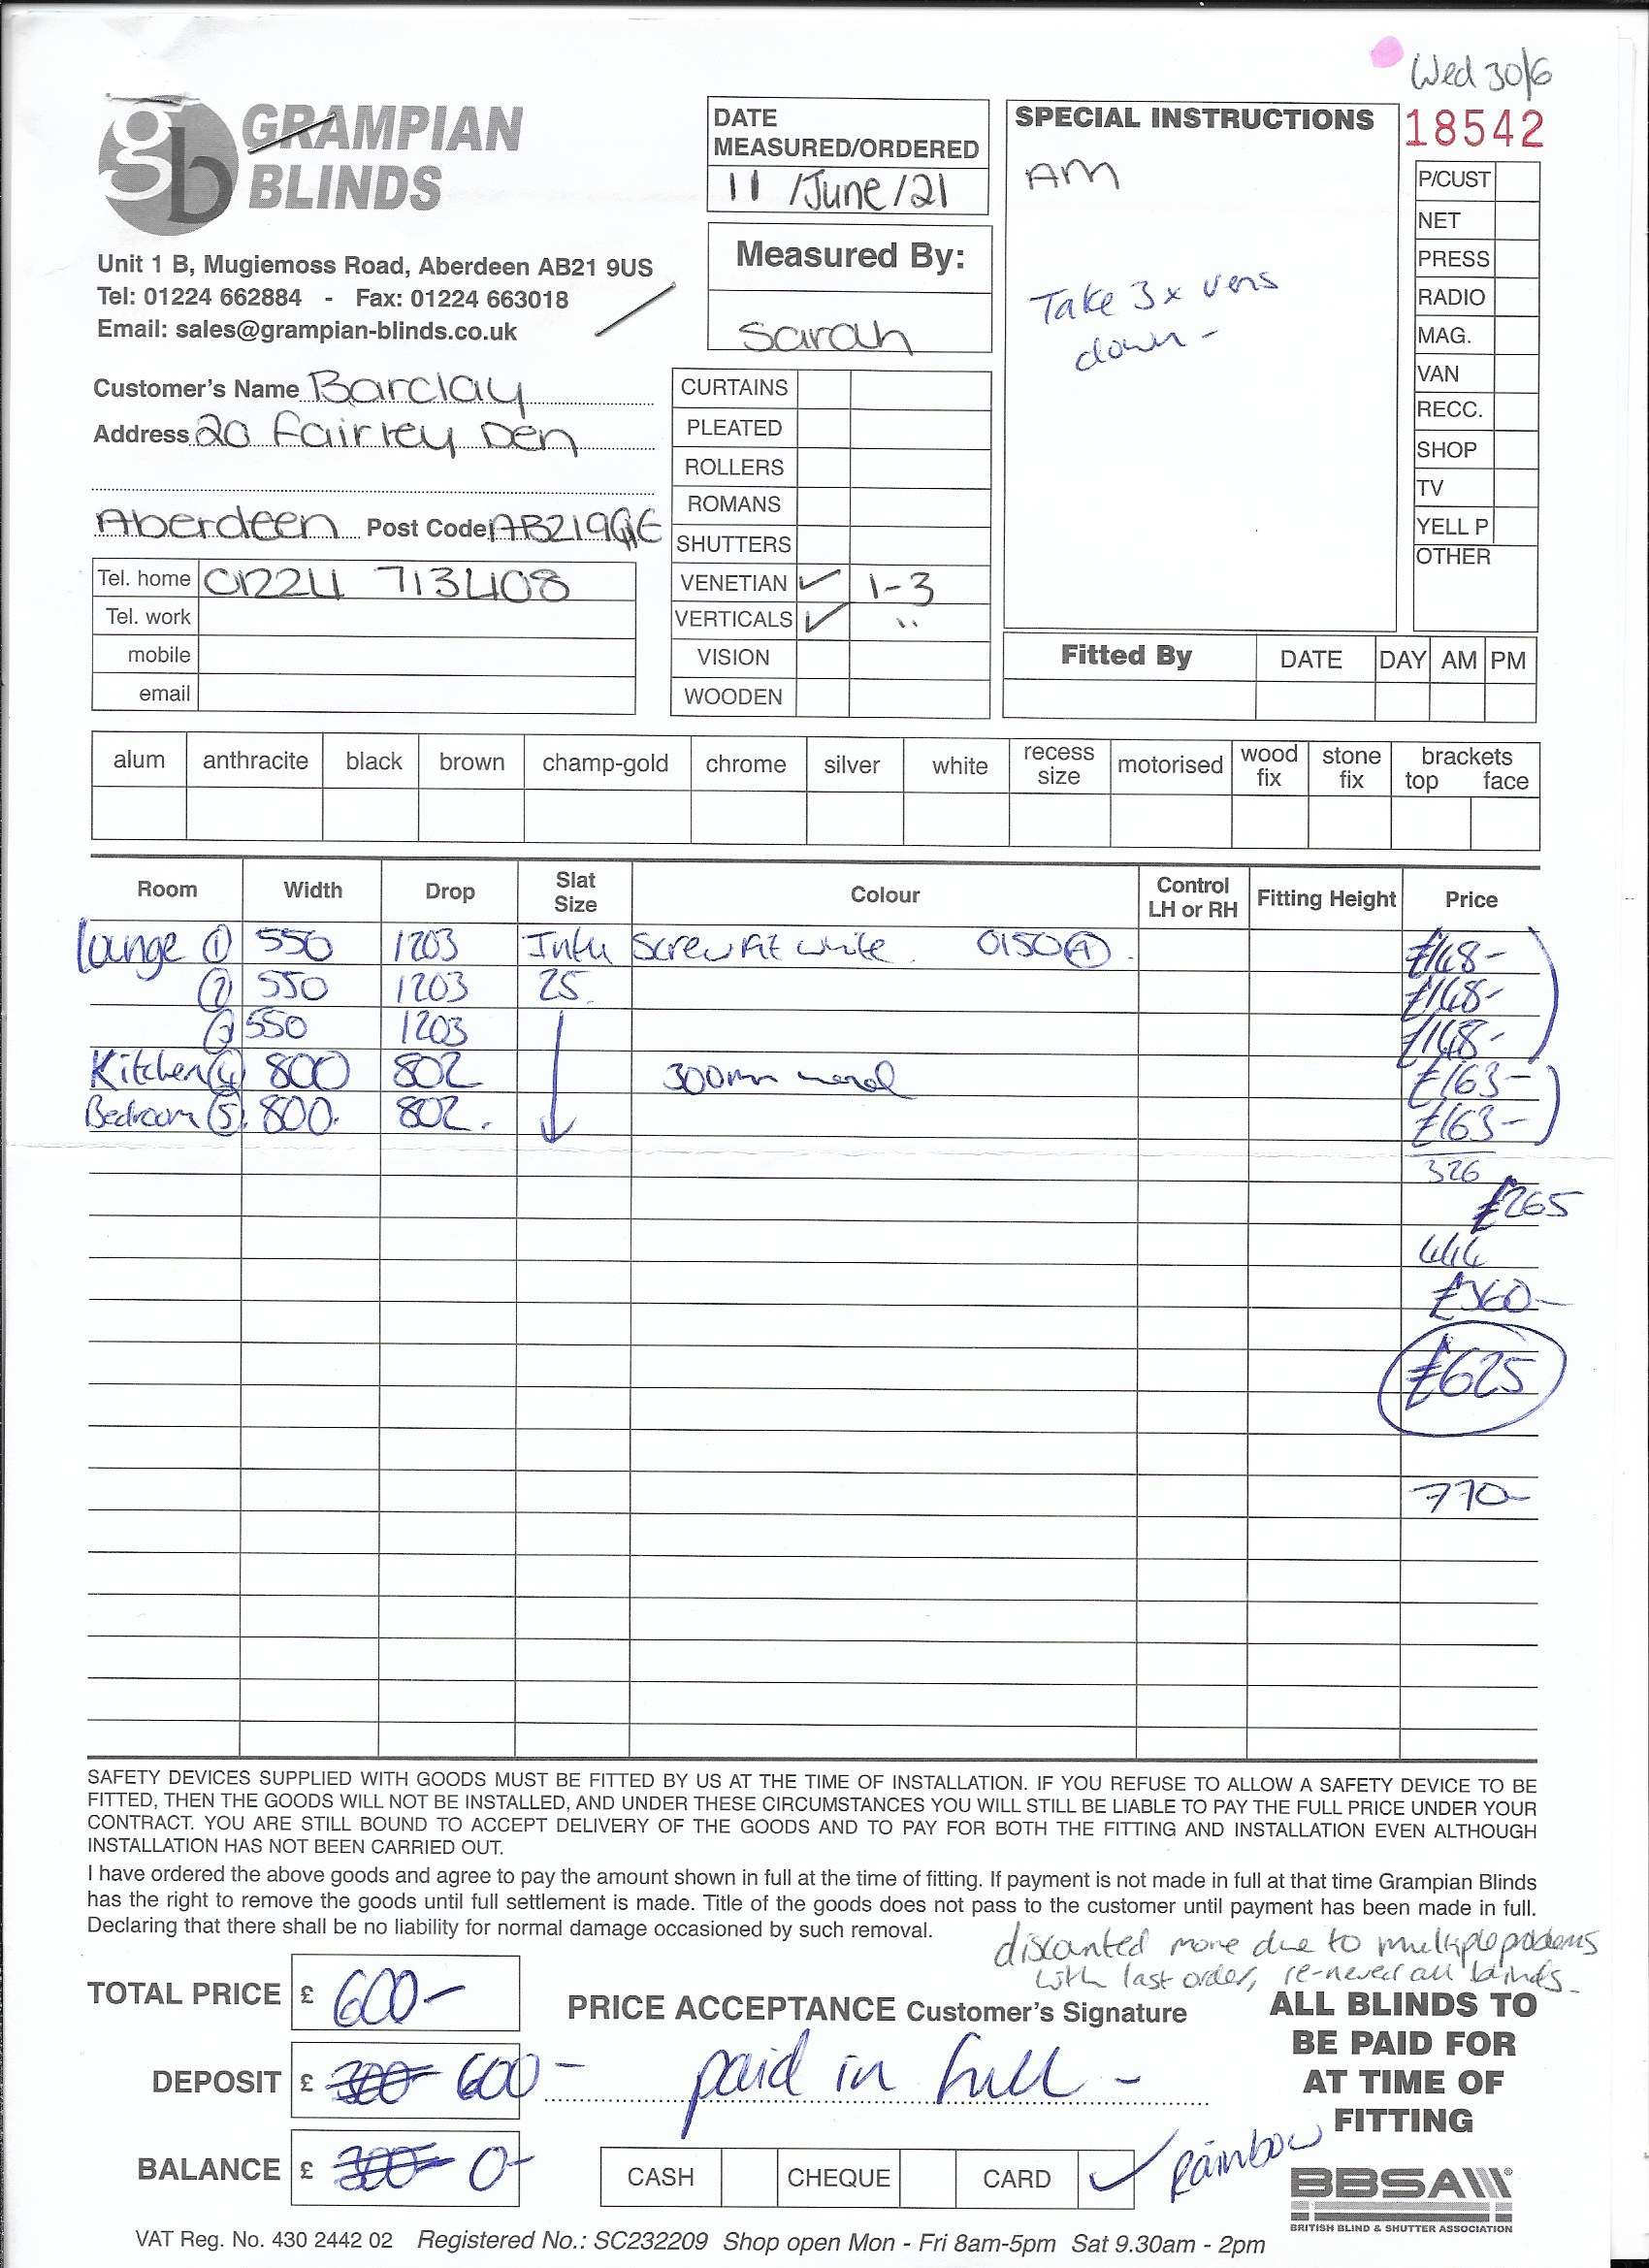 Wed 30/6
gb GRAMPIAN BLINDS
18542
Unit 1 B, Mugiemoss Road, Aberdeen AB21 9US
Tel: 01224 662884 - Fax: 01224 663018
Email: sales@grampian-blinds.co.uk
DATE MEASURED/ORDERED
11/June/21
Measured By:
Sarah
SPECIAL INSTRUCTIONS
AM
Take 3x vens
down -
P/CUST
NET
PRESS
RADIO
MAG.
VAN
RECC.
SHOP
TV
YELL P
OTHER
Customer's Name Barclay
Address 20 Fairley Den
Aberdeen Post Code AB219
Tel. home 01224 713408
Tel. work
mobile
email
CURTAINS
PLEATED
ROLLERS
ROMANS
SHUTTERS
VENETIAN ✓ 1-3
VERTICALS ✓ "
VISION
WOODEN
Fitted By DATE DAY AM PM
alum anthracite black brown champ-gold chrome silver white recess size motorised wood fix stone fix brackets top face
Room Width Drop Slat Size Colour Control LH or RH Fitting Height Price
Lounge 1 550 1203 Intu Screw Fit white 0150 £148-
2 550 1203 25 £148-
3 550 1203 £148-
Kitchen 4 800 802 300mm £163-
Bedroom 5 800. 802. £163-
326
£265
444
£360-
£625
770-
SAFETY DEVICES SUPPLIED WITH GOODS MUST BE FITTED BY US AT THE TIME OF INSTALLATION. IF YOU REFUSE TO ALLOW A SAFETY DEVICE TO BE
FITTED, THEN THE GOODS WILL NOT BE INSTALLED, AND UNDER THESE CIRCUMSTANCES YOU WILL STILL BE LIABLE TO PAY THE FULL PRICE UNDER YOUR
CONTRACT. YOU ARE STILL BOUND TO ACCEPT DELIVERY OF THE GOODS AND TO PAY FOR BOTH THE FITTING AND INSTALLATION EVEN ALTHOUGH
INSTALLATION HAS NOT BEEN CARRIED OUT.
I have ordered the above goods and agree to pay the amount shown in full at the time of fitting. If payment is not made in full at that time Grampian Blinds
has the right to remove the goods until full settlement is made. Title of the goods does not pass to the customer until payment has been made in full.
Declaring that there shall be no liability for normal damage occasioned by such removal.
discounted more due to multiple problems
with last order, re-newed all blinds.
TOTAL PRICE £ 600-
PRICE ACCEPTANCE Customer's Signature
DEPOSIT £ 300- 600-
paid in full -
BALANCE £ 300- 0-
CASH CHEQUE CARD ✓ Rainbow
ALL BLINDS TO
BE PAID FOR
AT TIME OF
FITTING
BBSA
BRITISH BLIND & SHUTTER ASSOCIATION
VAT Reg. No. 430 2442 02 Registered No.: SC232209 Shop open Mon - Fri 8am-5pm Sat 9.30am - 2pm